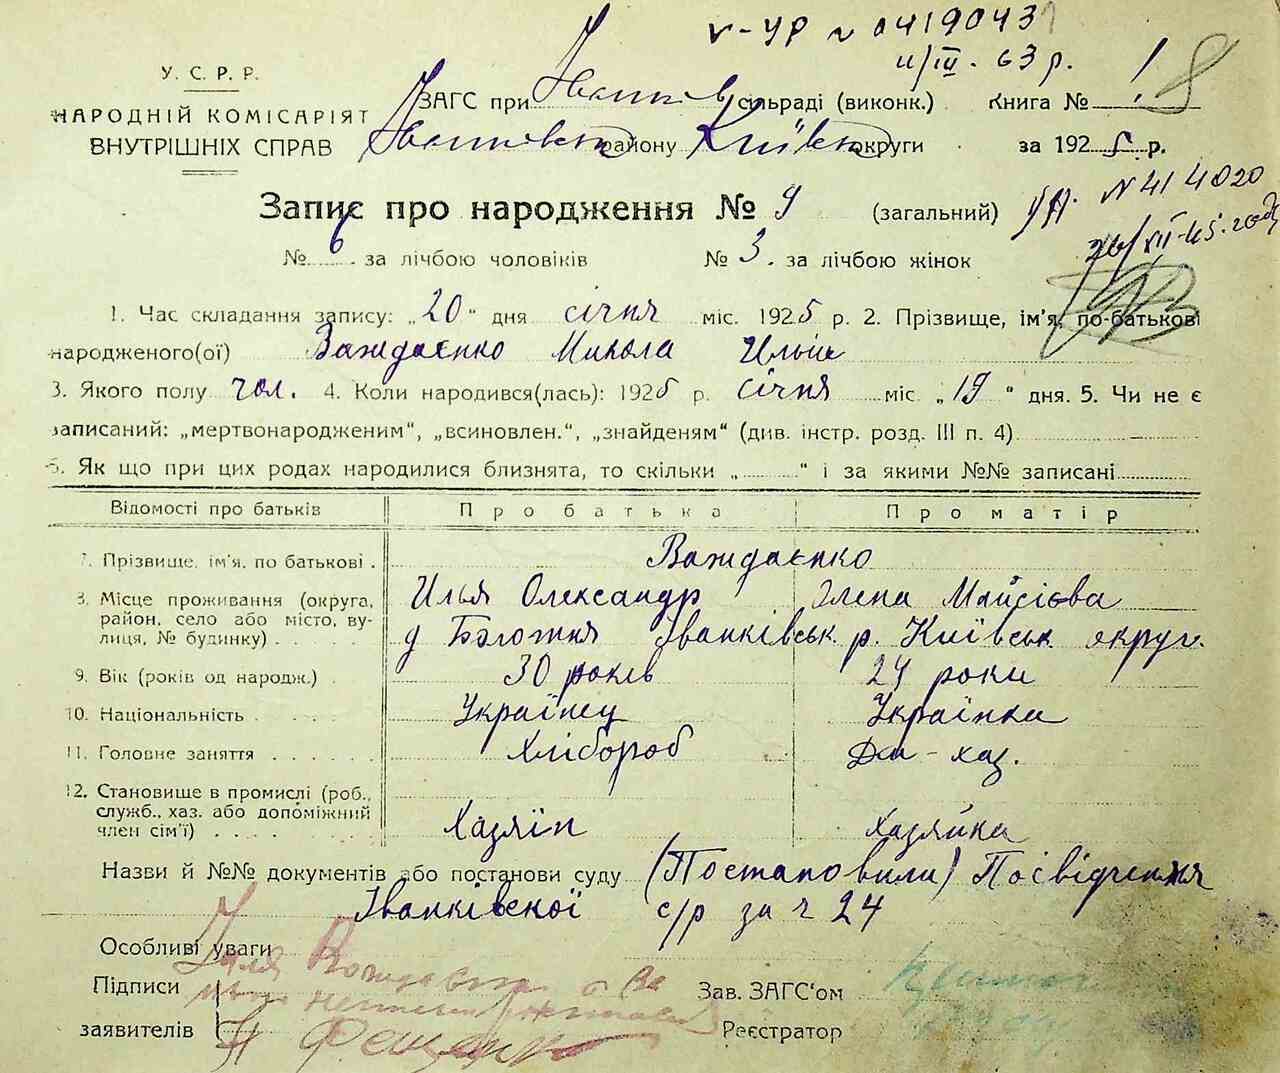 V-УР N 0419043
11/III-63 р.
У. С. Р. Р.
НАРОДНІЙ КОМІСАРІЯТ
ВНУТРІШНІХ СПРАВ
ЗАГС при Іванків сільраді (виконк.) Книга № 1 8
Іванківськ району Київськ округи за 1925 р.
Запис про народження № 9 (загальний)
УА. N 414020
26/VII-45. году
№ 6. за лічбою чоловіків № 3. за лічбою жінок
1. Час складання запису: „20" дня січня міс. 1925 р. 2. Прізвище, ім'я, по-батькові
народженого(ої) Важдаєнко Микола Ильїч
3. Якого полу чол. 4. Коли народився(лась): 1925 р. січня міс. „19" дня. 5. Чи не є
записаний: „мертвонародженим", „всиновлен.", „знайденям" (див. інстр. розд. III п. 4)
6. Як що при цих родах народилися близнята, то скільки „ " і за якими №№ записані
Відомості про батьків Про батька Про матір
7. Прізвище, ім'я, по батькові . Важдаєнко
8. Місце проживання (округа, Илья Олександр Элена Майсієва
район, село або місто, ву-
лиця, № будинку) . . . д Іванківськ. р. Київськ округи.
9. Вік (років од народж.) . 30 років 24 роки
10. Національність . . . . Українец Українка
11. Головне заняття . . . . . Хлібороб Дом-хаз.
12. Становище в промислі (роб.,
служб., хаз. або допоміжний
член сім'ї) . . . . Хазяїн хазяйка
Назви й №№ документів або постанови суду (Постановили) Посвідчення
Іванківскої с/р за ч 24
Особливі уваги
Підписи Зав. ЗАГС'ом
заявителів Фещенко Реєстратор